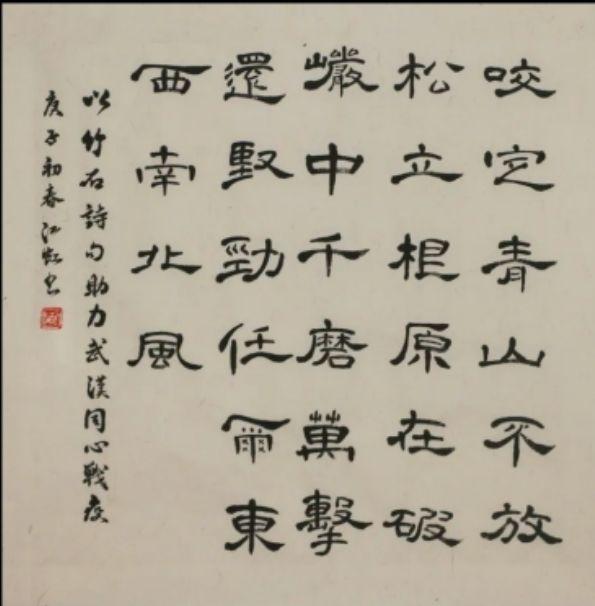 咬定青山不放
松立根原在破
巖中千磨萬擊
還堅勁任爾東
西南北風
以竹石詩句助力武漢同心戰疫
庚子初春江虹书